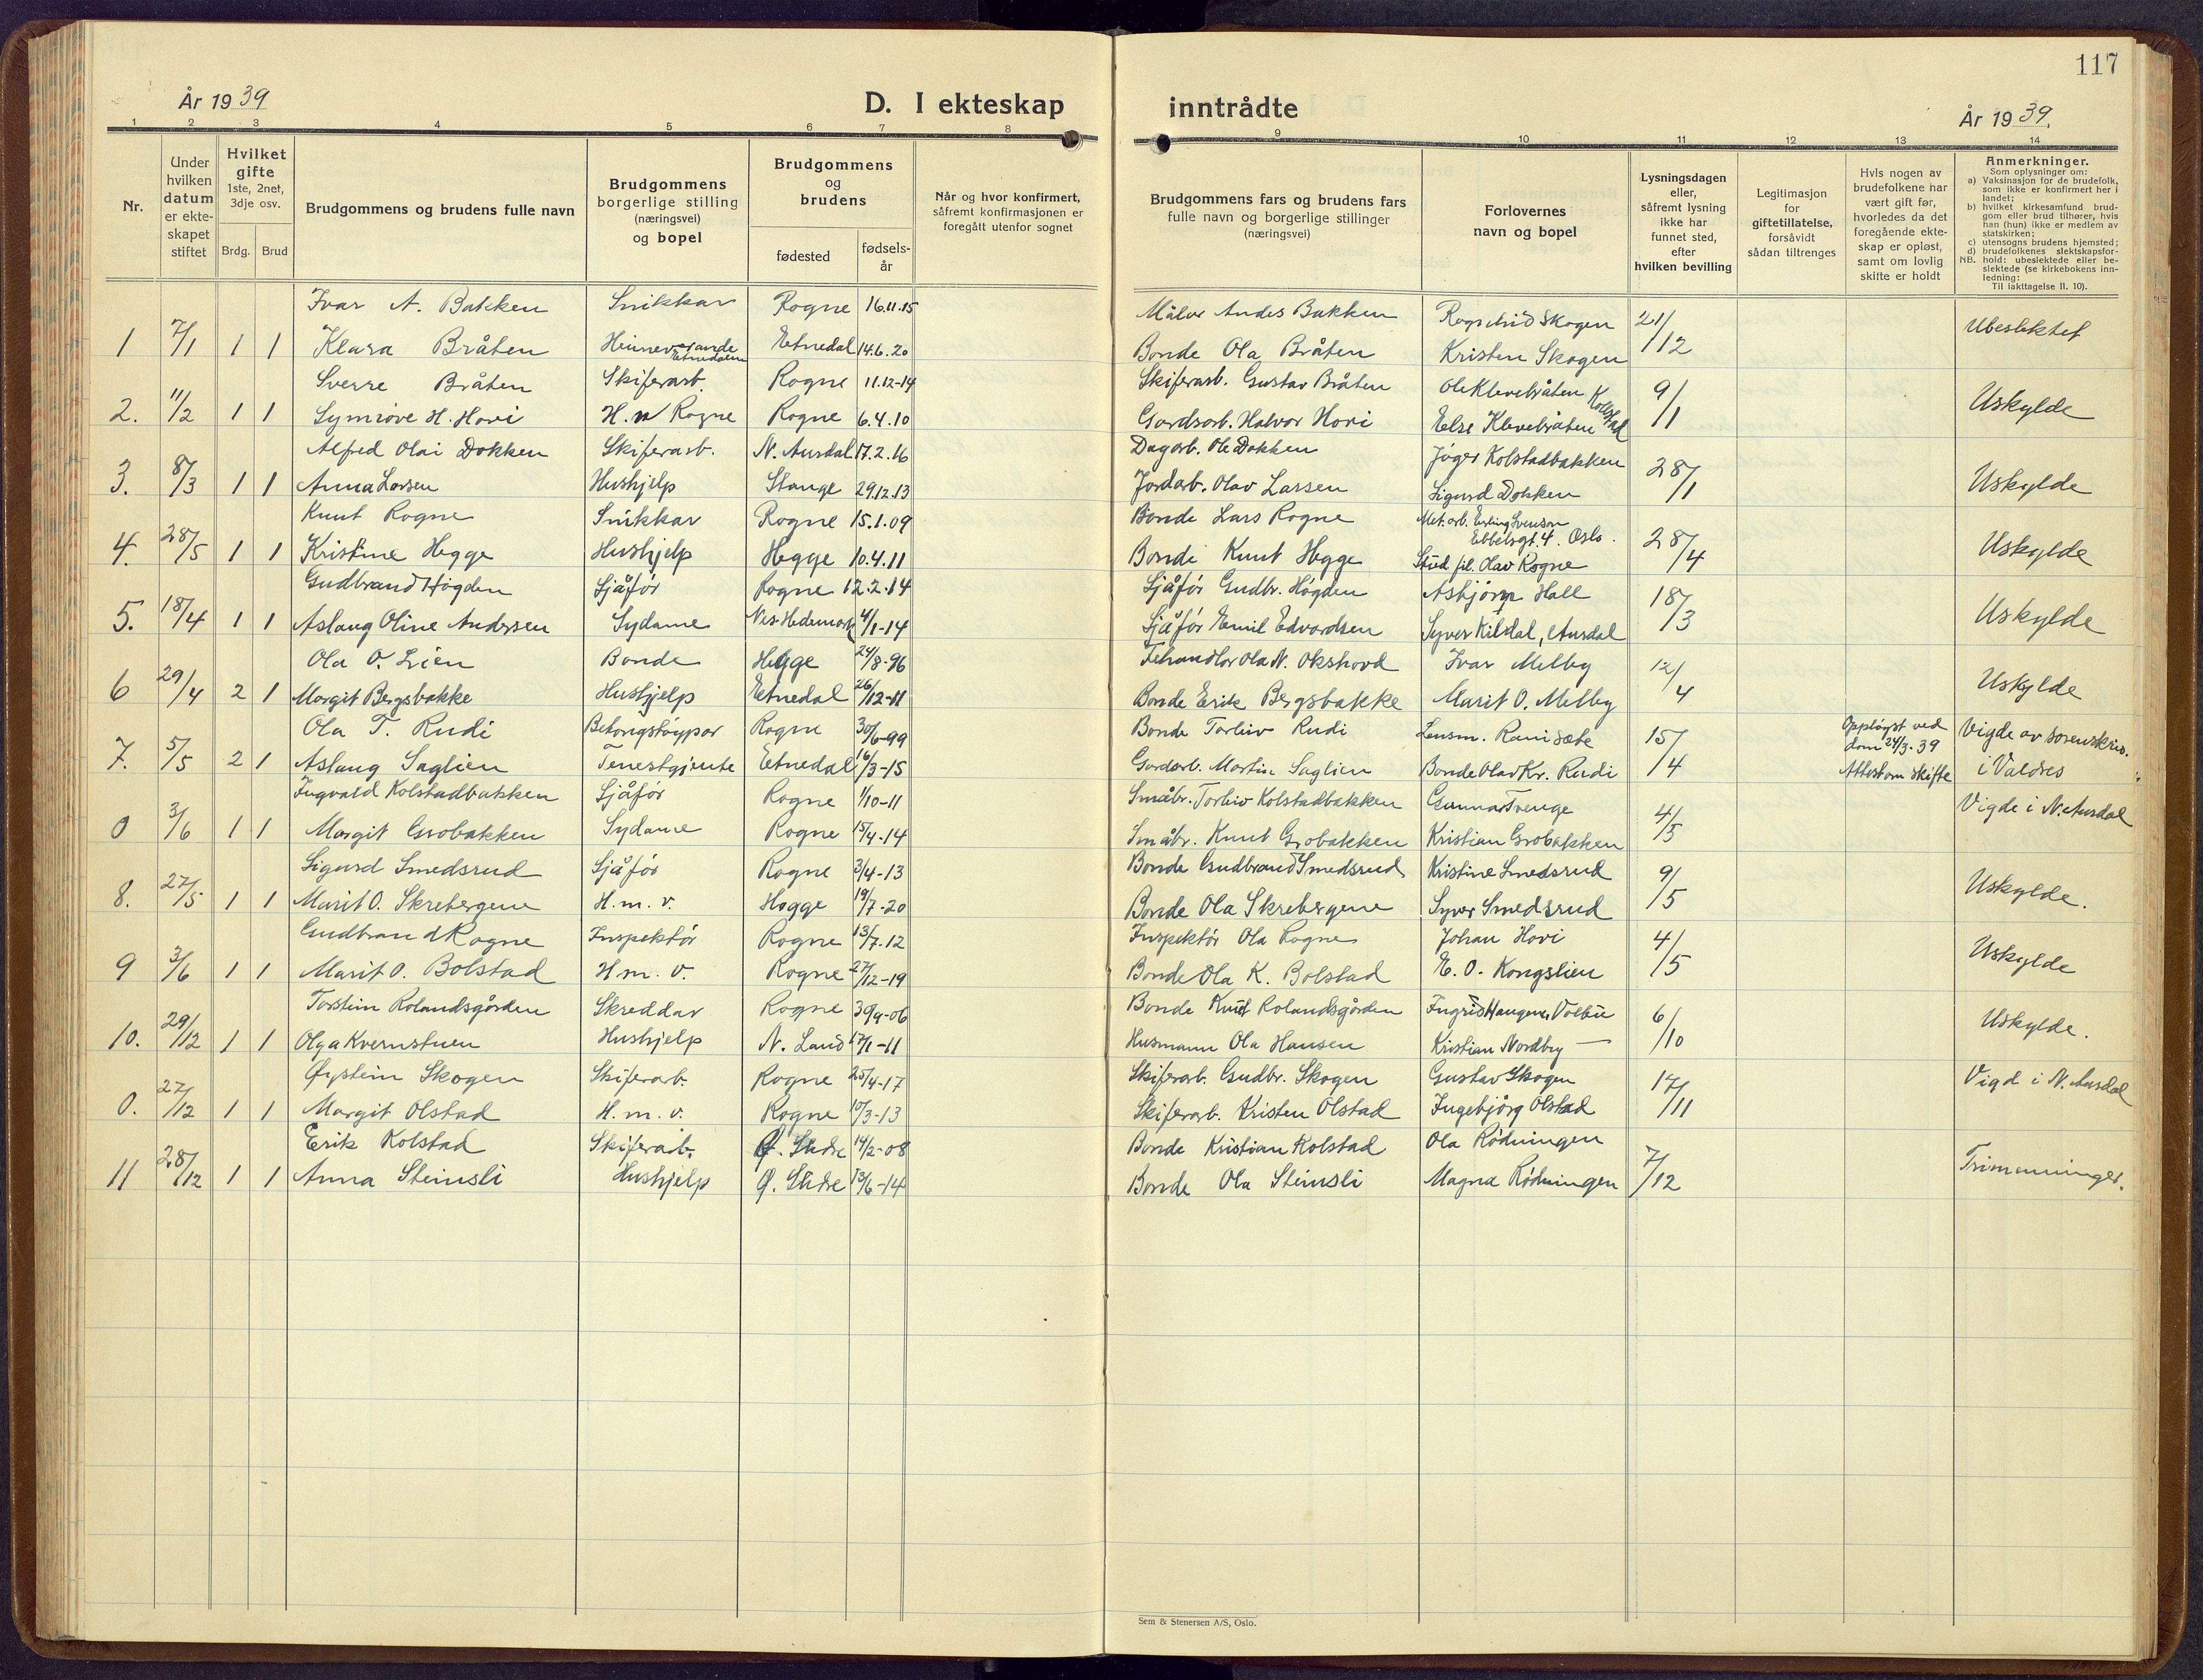 117
År 1939
D. I ekteskap inntrådte
År 1939.
1 2 3 4 5 6 7 8 9 10 11 12 13 14
Nr.
Under hvilken datum er ekteskapet stiftet
Hvilket gifte 1ste, 2net, 3dje osv.
Brdg. Brud
Brudgommens og brudens fulle navn
Brudgommens borgerlige stilling (næringsvei) og bopel
Brudgommens og brudens
fødested
fødsels-år
Når og hvor konfirmert, såfremt konfirmasjonen er foregått utenfor sognet
Brudgommens fars og brudens fars fulle navn og borgerlige stillinger (næringsvei)
Forlovernes navn og bopel
Lysningsdagen eller, såfremt lysning ikke har funnet sted, efter hvilken bevilling
Legitimasjon for giftetillatelse, forsåvidt sådan tiltrenges
Hvis nogen av brudefolkene har vært gift før, hvorledes da det foregående ekteskap er opløst, samt om lovlig skifte er holdt
Anmerkninger.
Som oplysninger om:
a) Vaksinasjon for de brudefolk, som ikke er konfirmert her i landet;
b) hvilket kirkesamfund brudgom eller brud tilhører, hvis han (hun) ikke er medlem av statskirken;
c) utensogns brudens hjemsted;
d) brudefolkenes slektskapsforhold: ubeslektede eller beslektede (se kirkebokens innledning:
NB.
Til iakttagelse II. 10).
Ivar A. Bakken Snikkar Rogne 16.11.15 Målar Andes Bakken Skogen 21/12 Ubeslektet
1 7/1 1 1 Klara Bråten Heimeverande Etnedalen Etnedal 14.6.20 Bonde Ola Bråten Kristen Skogen
Sverre Bråten Skiferarb. Rogne 11.12-14 Skiferarb. Gustav Bråten Ole Klevebråten Kolstad 9/1 Uskylde
2. 11/2 1 1 Symrøve H. Hovi H. Rogne Rogne 6.4.10 Gardsarb. Halvor Hovi Else Klevebråten
Alfred Olai Dokken Skiferarb. N. Aurdal 17.2.16 Dagarb. Ole Dokken Jøger Kolstadbakken 28/1 Uskylde
3. 8/3 1 1 Anna Larsen Hushjelp Stange 29.12.13 Jordarb. Olav Larsen Sigurd Dokken
Knut Rogne Snikkar Rogne 15.1.09 Bonde Lars Rogne Met. arb. Erling Svenson Ebbelsgt. 4. Oslo. 28/4 Uskylde
4. 28/5 1 1 Kristine Hegge Hushjelp Hegge 10.4.11 Bonde Knut Hegge Stud fil. Olav Rogne
Gudbrand Høgden Sjåfør Rogne 12.2.14 Sjåfør Gudbr. Høgden Asbjørn Hall 18/3 Uskylde
5. 18/4 1 1 Aslaug Oline Andersen Sydame Nes Hedemark 4/1-14 Sjåfør Emil Edvardsen Syver Kildal, Aurdal
Ola O. Lien Bonde Hegge 24/8-96 Fehandlar Ola N. Okshovd Ivar Melby 12/4 Uskylde
6 29/4 2 1 Margit Bergsbakke Hushjelp Etnedal 26/12-11 Bonde Erik Bergsbakke Marit O. Melby
Ola T. Rudi Betongstøypar Rogne 30/6-99 Bonde Torleiv Rudi Lensm. Ranisæte 15/4 Oppløyst ved dom 24/3-39 Vigde av sorenskriv.
7. 5/5 2 1 Aslaug Saglien Tenestgjente Etnedal 16/3-15 Gardarb. Martin Saglien Bonde Olav Kr. Rudi Attest om skifte i Valdres
Ingvald Kolstadbakken Sjåfør Rogne 1/10-11 Småbr. Torleiv Kolstadbakken Gunnar Tvenge 4/5 Vigde i N. Aurdal
0 3/6 1 1 Margit Grobakken Sydame Rogne 15/4-14 Småbr. Knut Grobakken Kristian Grobakken
Sigurd Smedsrud Sjåfør Rogne 3/4-13 Bonde Gudbrand Smedsrud Kristine Smedsrud 9/5 Uskylde.
8. 27/5 1 1 Marit O. Skrebergene H. m. v. Hegge 19/7-20 Bonde Ola Skrebergene Syver Smedsrud
Gudbrand Rogne Inspektør Rogne 13/7.12 Inspektør Ola Rogne Johan Hovi 4/5 Uskylde
9 3/6 1 1 Marit O. Bolstad H. m. v. Rogne 27/12-19 Bonde Ola K. Bolstad E. O. Kongslien
Torstein Rolandsgården Skreddar Rogne 30/9-06 Bonde Knut Rolandsgården Ingrid Haugen, Volbu 6/10 Uskylde.
10. 29/12 1 1 Olga Kvernstuen Hushjelp N. Land 17/1-11 Husmann Ola Hansen Kristian Nordby —
Øystein Skogen Skiferarb. Rogne 25/4-17 Skiferarb. Gudbr. Skogen Gustav Skogen 17/11 Vigd i N. Aurdal
0. 27/12 1 1 Margit Olstad H. m. v. Rogne 10/3-13 Skiferarb. Kristen Olstad Ingebjørg Olstad
Erik Kolstad Skiferarb. Ø. Slidre 14/2-08 Bonde Kristian Kolstad Ola Rødningen 7/12 Trimenninger.
11 28/12 1 1 Anna Steinsli Hushjelp Ø. Slidre 13/6-14 Bonde Ola Steinsli Magna Rødningen
Sem & Stenersen A/S, Oslo.